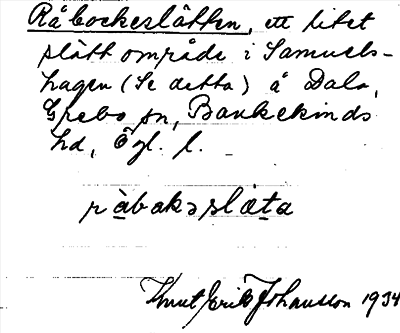 Råbockeslåtten, ett litet
slått område i Samuels-
hagen (Se detta) å Dala,
Grebo sn, Bankekinds
hd, Ögl. l.
råbakəslåta
Knut Erik Johansson 1934